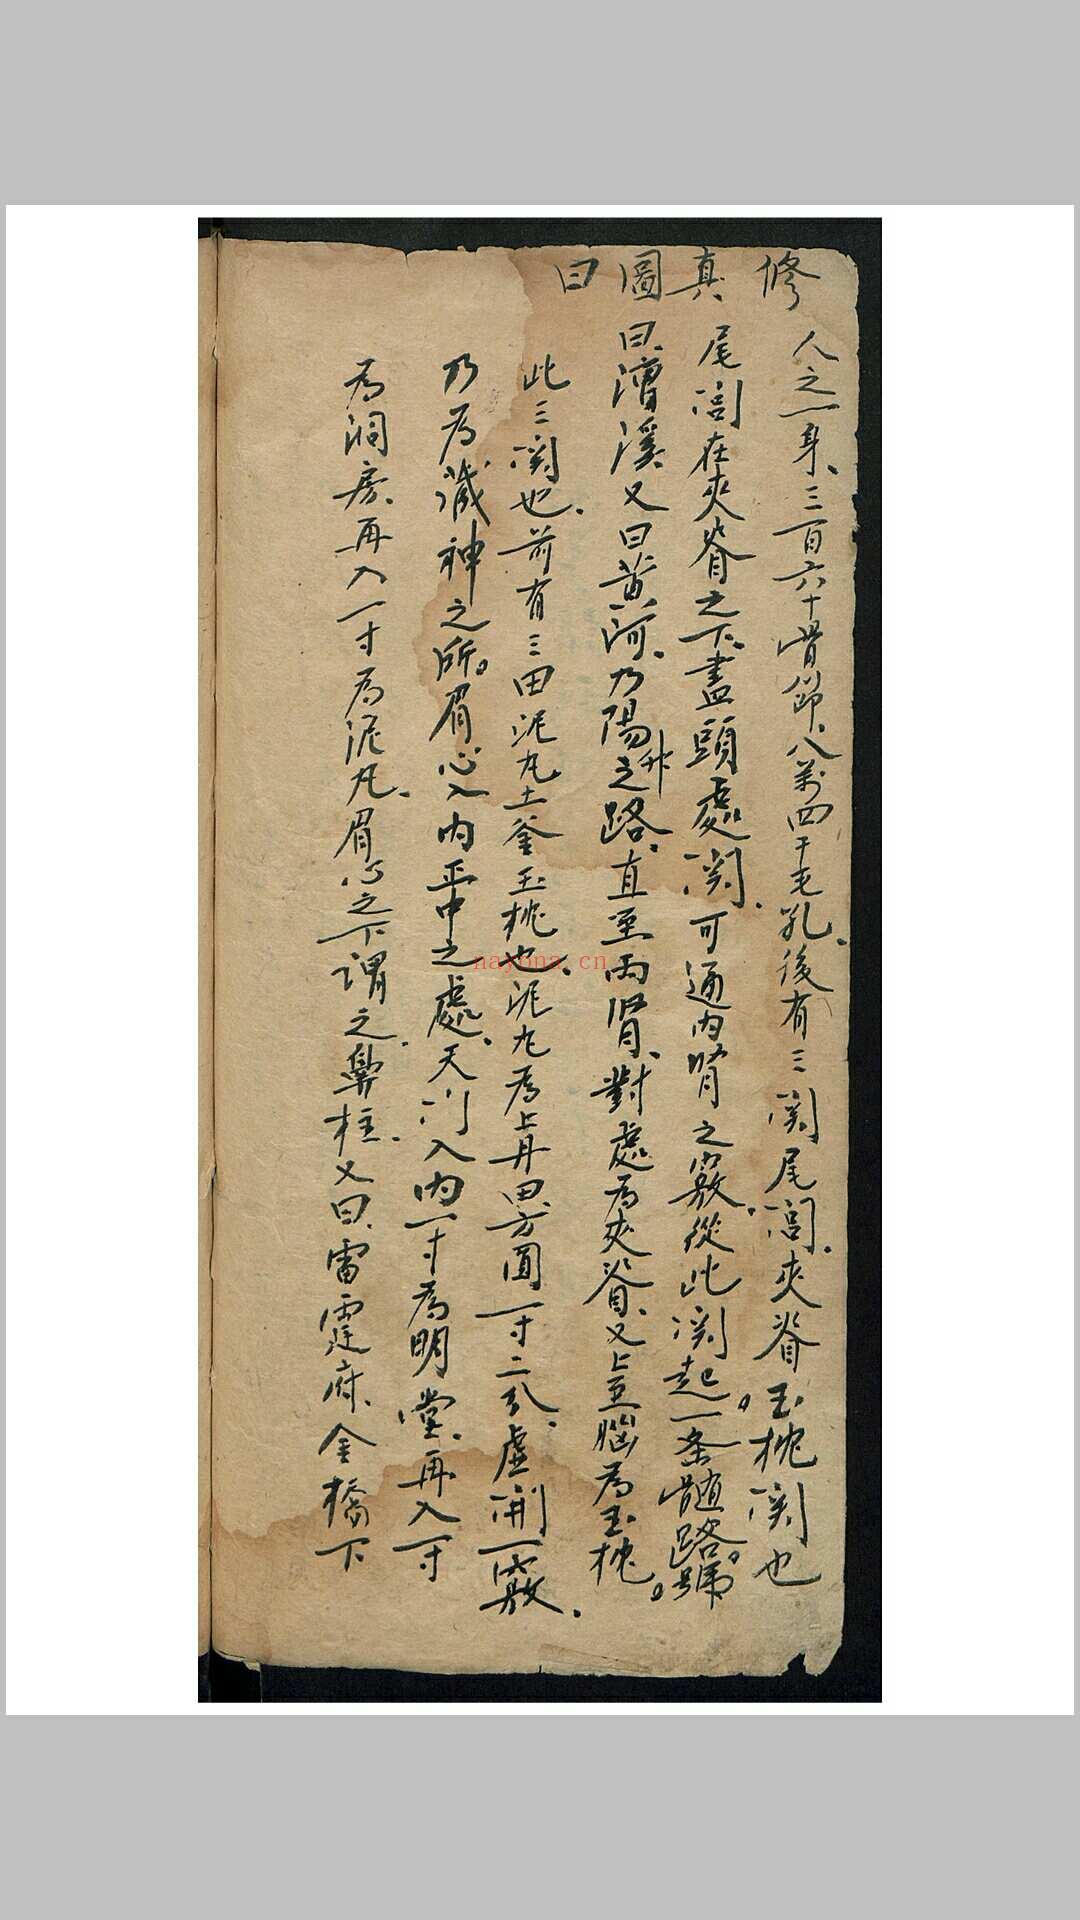 修真圖曰
人之一身、三百六十骨節、八萬四千毛孔、後有三関尾閭、夾脊、玉枕関也
尾閭在夾脊之下、盡頭處関、可通內腎之竅、從此関起一条髓路。號
曰、漕溪又曰黃河、乃陽升之路、直至両腎、對處為夾脊、又上至腦為玉枕。
此三関也、前有三田泥丸土釜玉枕也、泥丸為上丹田、方圓一寸二分、虛開一竅、
乃為藏神之所。眉心入內正中之處、天门入內一寸為明堂、再入一寸
為洞房、再入一寸為泥丸、眉心之下謂之、鼻柱、又曰、雷霆府、金橋下
nayona.cn